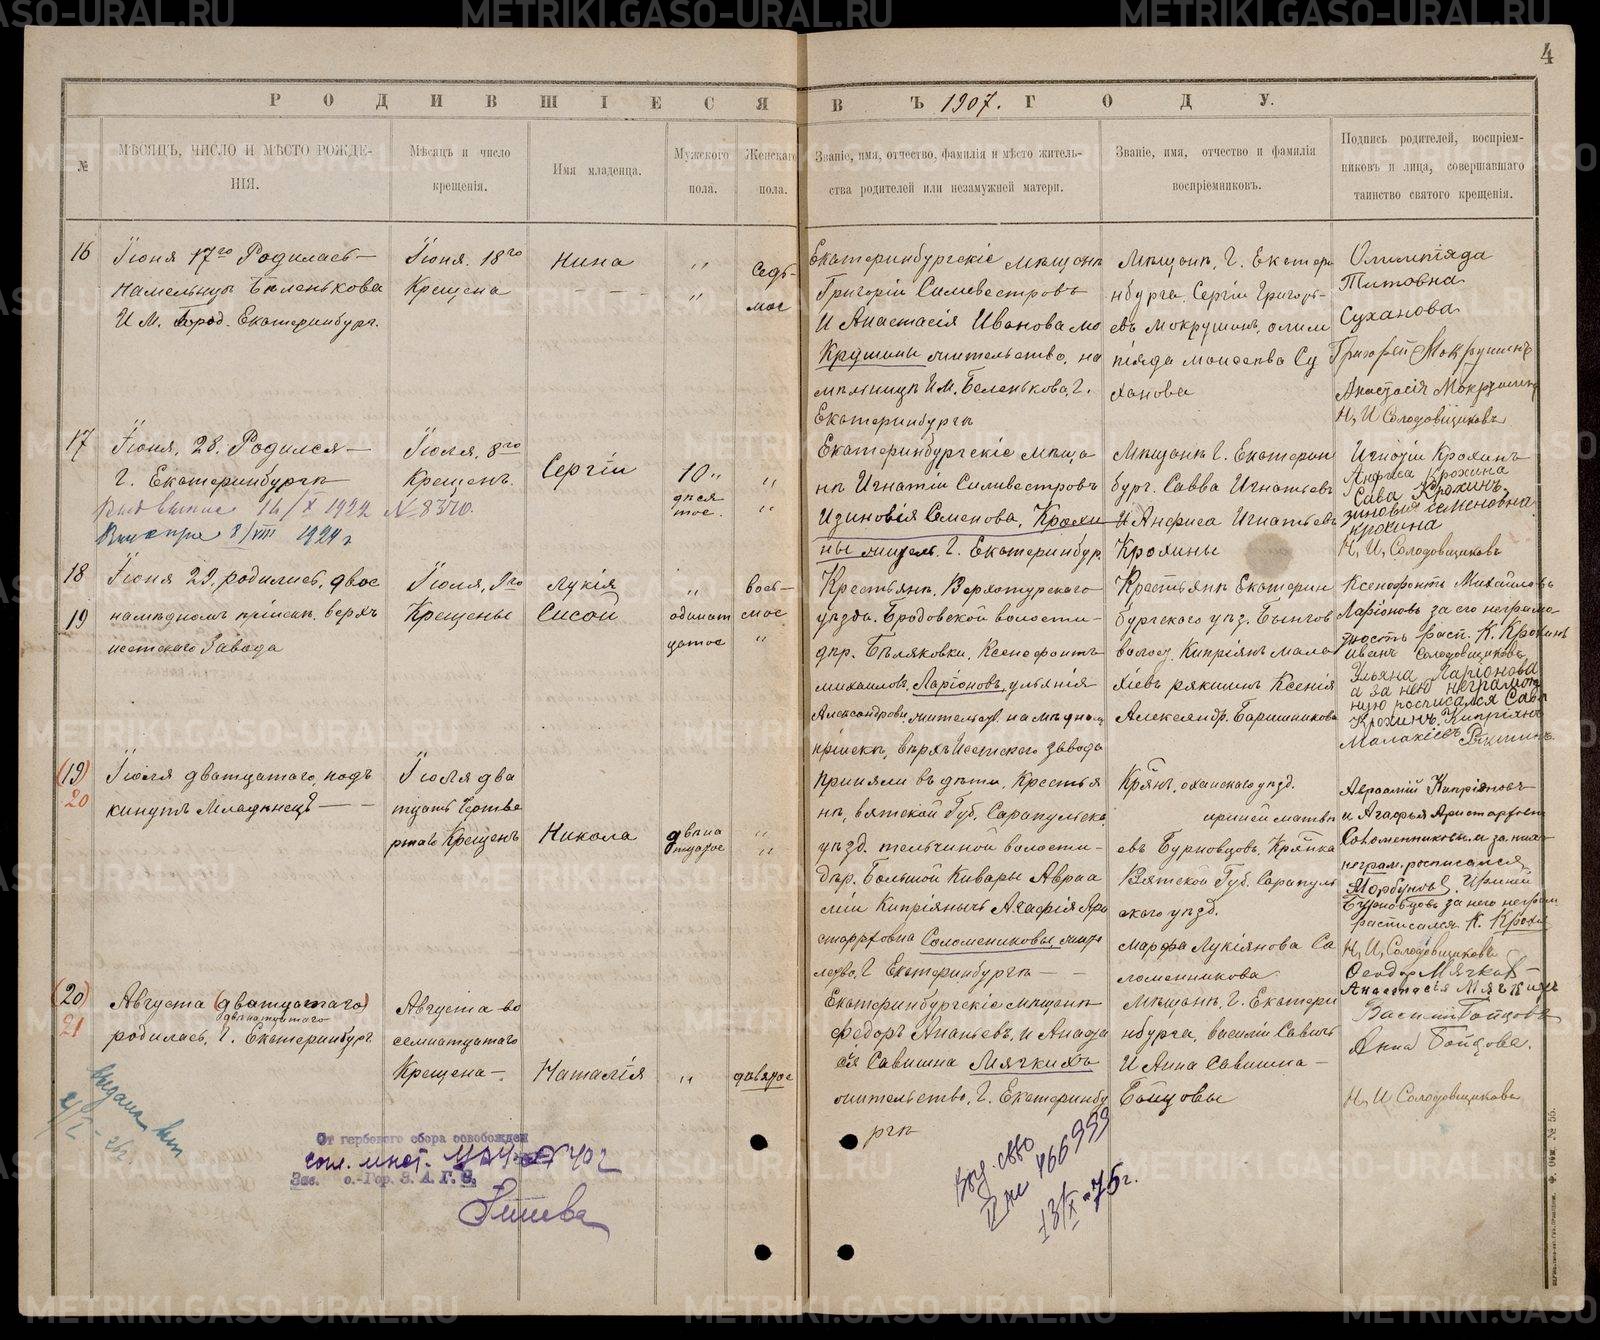 4
РОДИВШІЕСЯ ВЪ 1907. ГОДУ.
№
МѢСЯЦЪ, ЧИСЛО И МѢСТО РОЖДЕ-
НІЯ.
Мѣсяцъ и число
крещенія.
Имя младенца.
Мужского
пола.
Женскаго
пола.
Званіе, имя, отчество, фамилія и мѣсто житель-
ства родителей или незамужней матери.
Званіе, имя, отчество и фамилія
воспріемниковъ.
Подпись родителей, воспріем-
никовъ и лица, совершавшаго
таинство святого крещенія.
16
Іюня 17го Родилась —
Намельницы Беленькова
И М. город. Екатеринбург.
Іюня. 18го
Крещена
Нина
Седь-
мое
Екатеринбургскіе мѣщанѣ
Григорій Силивестровъ
И Анастасія Иванова мо
Крушины жительство, на
мѣльницѣ И М. Беленькова, Г.
Екатеринбургѣ
Мѣщанѣ, Г. Екатери
нбурга. Сергій Григорь-
евъ Мокрушинъ, олим
піяда Моисеевва Су
ханова
Олимпіяда
Титовна
Суханова
Григорій Мокрушинъ
Анастасія Мокрушина
Н, И Солодовщиковъ
17
Іюня, 28. Родился —
Г. Екатеринбургѣ
16/X 1922 № 8370.
8/VIII 1924 г
Іюля, 8го
Крещенъ
Сергій
10
дѣся
тое.
Екатеринбургскіе мѣща
нѣ Игнатій Силивестровъ
Изиновія Семенова, Крохи
ны жицель. Г. Екатеринбур.
Мѣщанѣ Г. Екатерин
бург. Савва Игнатьевъ
И Анфиса Игнатьевъ
Крохины
Игнатій Крохинъ
Анфиса Крохина
Сава Крохинъ,
зиновия семеновна
крохина
Н, И, Солодовщиковъ
18
19
Іюня 29, родились, двое
намѣдномъ пріискѣ. верхъ
исетскаго Завода
Іюля, 9го
Крещены
Лукія
Сисой
одинат
цатое
вось-
мое
Крестьянѣ, Верхотурскаго
уѣзда. Бродовской волости-
дѣр. Бѣляковки, Ксенофонтъ
михаиловъ, Ларіоновъ, ульянія
Александрови, жительст. на мѣдном
пріискѣ, вѣрхъ Исетскаго завода
Крестьянѣ Екатерин
бургскаго уѣз. Бынгов
волос, Кипріянъ Мала
хіевъ рякишинъ Ксенія
Александр. Баришникова
Ксенофонтъ Михайловъ
Ларіоновъ за его неграмо
тность расп. К. Крохинъ
иванъ Солодовщиковъ
Ульяна Ларіонова
а за нею неграмот
ную росписался Савъ
Крохинъ. Кипріянъ
Малахіевъ Рякишинъ
(19)
20
Іюля дватцатаго, подъ
кинутъ Младѣнецъ — —
Іюля два
тцать Четве
ртаго Крещенъ
Никола
двѣна
тцатое
Приняли въ дѣти, Крестья
нѣ, вятской Губ, Сарапульска.
уѣзд. тельчиной волости-
дѣр. Большой Кивары Авраа
мій Кипріянычъ Агафія Ари
старховна Соломениковы, жите
лство, Г Екатеринбургѣ — —
Крян, оханскаго уѣзд.
ириней матвѣ
евъ Бурновцовъ, Крянка
Вятской Губ. Сарапуль
скаго уѣзд.
марфа Лукіянова Са
ломенникова
Авраамій Кипріяновъ
и Агафья Аристарховы
Соломенниковы и за них
неграм. росписался
Я Горбуновъ, Ириней
Бурновцовъ за него неграм
расписался К. Крохин
Н, И, Солодовщиковъ
(20)
21
Августа (дватцатаго)
двѣнатцатаго
родилась, Г. Екатеринбург
Августа во
семнатцатаго
Крещена —.
Наталія
дѣвятое
Екатеринбургскіе мѣщанѣ
Федоръ Ананьевъ, и Анаста
сія Савишна Мячкихъ
жительство, Г. Екатеринбу
ргѣ
Мѣщанѣ, Г. Екатери
нбурга, василій Савичъ
И Анна Савишна —
Боицовы
Феодоръ Мячковъ
Анастасія Мячкихъ
Василій Бойцовъ
Анна Бойцова.
Н, И Солодовщиковъ
выдана
От гербового сбора освобожден
согл. инст.
Зав. о.-Гор. З. А. Г. С.
Выд. св-во
466999
13/X-75г.
METRIKI.GASO-URAL.RU